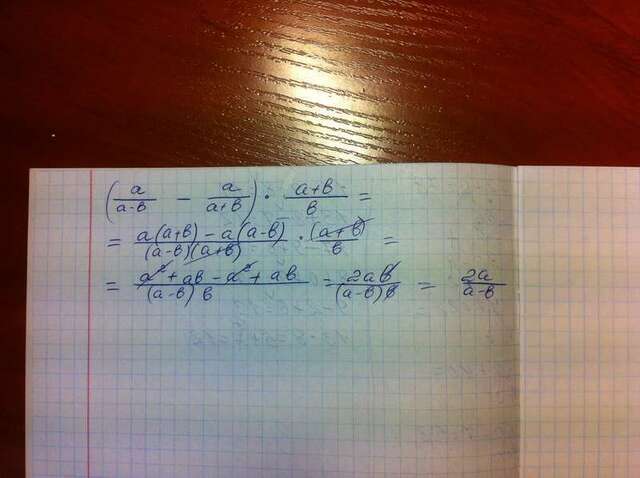 (a/(a-b) - a/(a+b)) · (a+b)/b =
= (a(a+b) - a(a-b))/((a-b)(a+b)) · (a+b)/b =
= (a² + ab - a² + ab)/((a-b)b) = 2ab/((a-b)b) = 2a/(a-b)